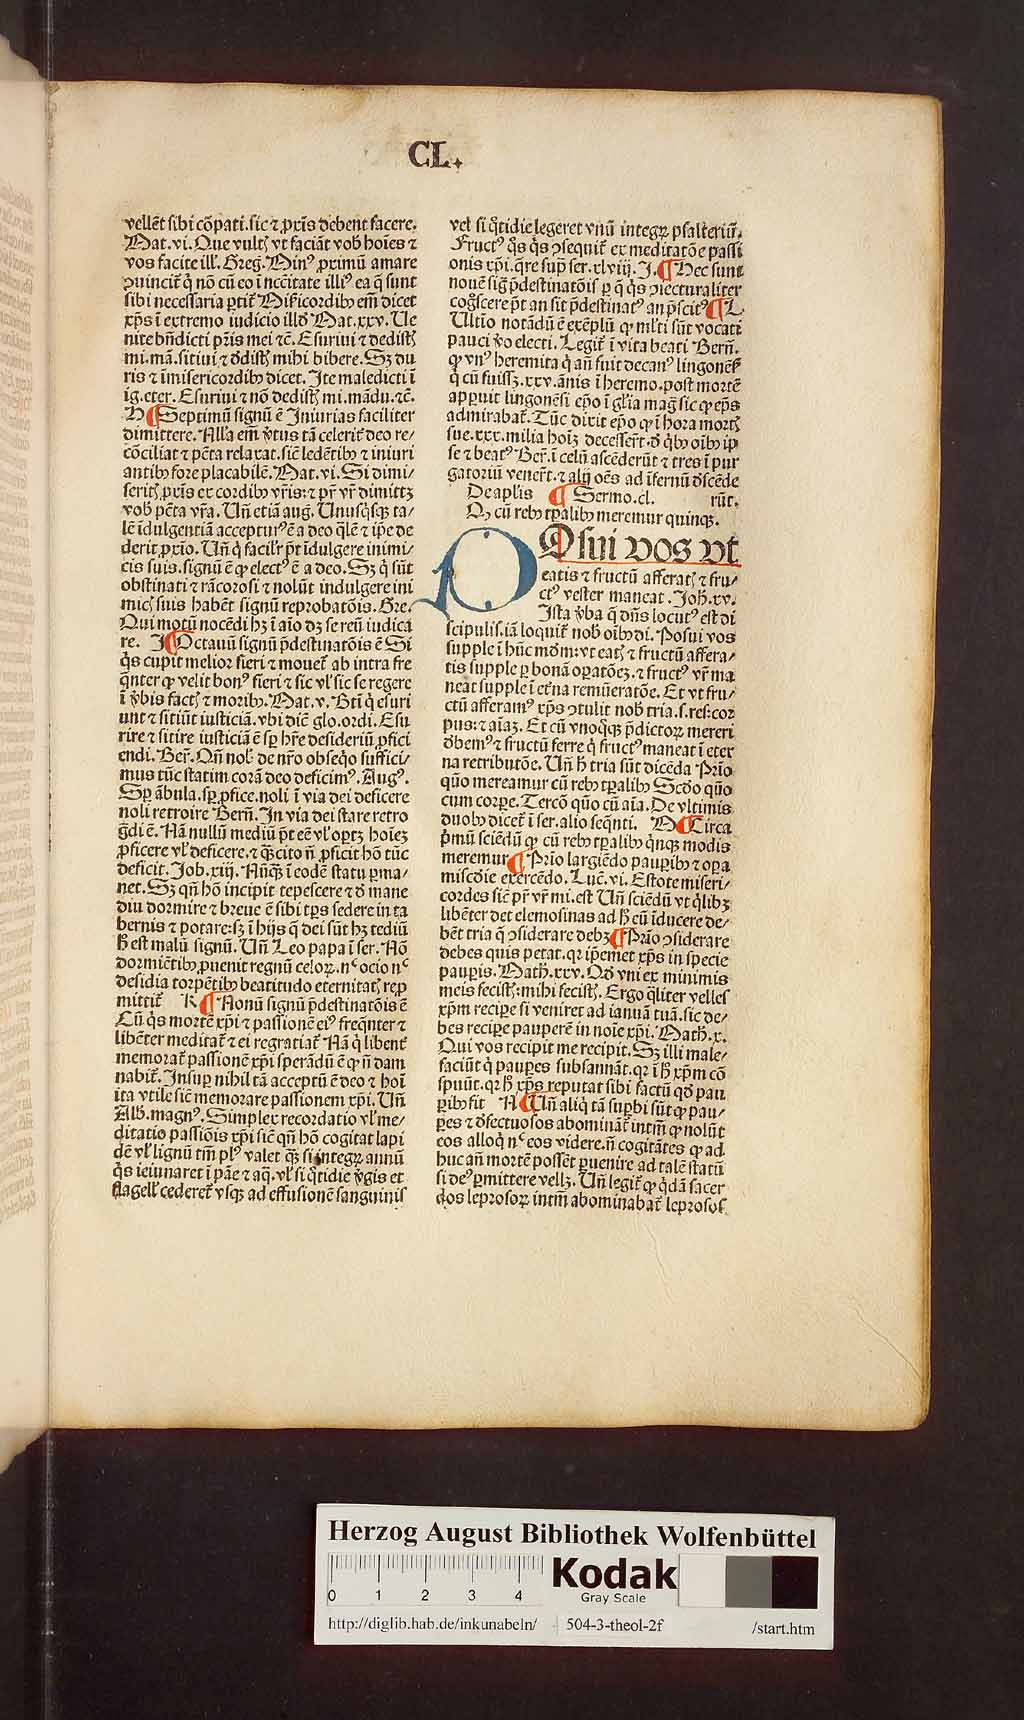 CL.
vellēt sibi cōpati. sic ⁊ ꝓxīs debent facere.
Mat. vi. Que vultꝭ vt faciāt vob hoīes ⁊
vos facite ill'. Greg. Min⁹ ꝓximū amare
ꝯuincit̄ q̇ nō cū eo ī nc̄citate illi⁹ ea q̄ sunt
sibi necessaria ꝑtit̄ Mīficordibꝫ em̄ dicet
xp̄s ī extremo iudicio illd Mat. xxv. Ue
nite bn̄dicti pr̄is mei ⁊c̄. Esuriui ⁊ dedistꝭ
mi. mā. sitiui ⁊ ddistꝭ mihi bibere. Sꝫ du
ris ⁊ īmisericordibꝫ dicet. Ite maledicti ī
ig. eter. Esuriui ⁊ nō dedistꝭ mi. mādu. ⁊c̄.
H ¶ Septimū signū ē Iniurias faciliter
dimittere. Alla em̄ v̓tus tā celerit̄ deo re-
cōciliat ⁊ pēta relaxat. sic̄ ledētibꝫ ⁊ iniuri
antibꝫ fore placabilē. Mat. vi. Si dimi-
seritꝭ ꝓxīs ex cordibꝫ vr̄is: ⁊ pr̄ vr̄ dimittꝫ
vob pēta vr̄a. Un̄ etiā aug. Unusq̇sqꝫ ta-
lē īdulgentiā acceptur⁹ ē a deo q̄lē ⁊ ip̄e de
derit ꝓxīo. Un̄ q̇ facilr̄ pt̄ īdulgere inimi-
cis suis. signū ē ꝙ elect⁹ ē a deo. Sꝫ q̇ sūt
obstinati ⁊ rācorosi ⁊ nolūt indulgere ini
micꝭ suis habēt signū reprobatōis. Gre.
Qui motū nocēdi hꝫ ī aīo dꝫ se reū iudica
re. I ¶ Octauū signū p̄destinatōis ē Si
q̇s cupit melior fieri ⁊ mouet̄ ab intra fre
q̄nter ꝙ velit bon⁹ fieri ⁊ sic vl' sic se regere
ī v̓bis factꝭ ⁊ moribꝫ. Mat. v. Btī q̇ esuri
unt ⁊ sitiūt iusticiā. vbi dic̄ glo. ordi. Esu
rire ⁊ sitire iusticiā ē sp̄ hr̄e desideriū ꝓfici
endi. Ber̄. Qn̄ nob de nr̄o obseq̄o suffici-
mus tūc statim corā deo deficim⁹. Aug⁹.
Sp̄ ābula. sp̄ ꝓfice. noli ī via dei deficere
noli retroire Bern̄. In via dei stare retro
gdi ē. Nā nullū mediū pt̄ eē vl' oꝑtꝫ hoīeꝫ
ꝓficere vl' deficere. ⁊ q̄cito n̄ ꝓficit hō tūc
deficit. Job. xiij. Nūq̄ ī eodē statu ꝑma-
net. Sꝫ qn̄ hō incipit tepescere ⁊ d mane
diu dormire ⁊ breue ē sibi tp̄s sedere in ta
bernis ⁊ potare: sꝫ ī hijs q̄ dei sūt hꝫ tediū
h̄ est malū signū. Un̄ Leo papa ī ser. Nō
dormiētibꝫ ꝓuenit regnū celoꝝ. nᶜ ocio nᶜ
desidia torpētibꝫ beatitudo eternitatꝭ rep̱
mittit̄ K ¶ Nonū signū p̄destinatōis ē
Cū q̇s mortē xp̄i ⁊ passionē ei⁹ freq̄nter ⁊
libēter meditat̄ ⁊ ei regratiat̄ Nā q̇ libent̄
memorat̄ passionē xp̄i sperādū ē ꝙ n̄ dam
nabit̄. Insuꝑ nihil tā acceptū ē deo ⁊ hoī
ita vtile sic̄ memorare passionem xp̄i. Un̄
Alb. magn⁹. Simplex recordatio vl' me-
ditatio passiōis xp̄i sic̄ qn̄ hō cogitat lapi
dē vl' lignū tm̄ pl⁹ valet q̄ si integꝝ annū
q̇s ieiunaret ī pāe ⁊ aq̄. vl' si q̇tidie v̓gis et
flagell' cederet̄ vsqꝫ ad effusionē sanguinis
vel si q̇tidie legeret vnū integꝝ psalteriū.
Fruct⁹ q̇s q̇s ꝯsequit̄ ex meditatōe passi
onis xp̄i. q̄re sup̄ ser. xlviij. I. ¶ Hec sunt
nouē siḡ p̄destinatōis ꝑ q̄ q̇s ꝯiecturaliter
coḡscere pt̄ an sit p̄destinat⁹ an p̄scit⁹ ¶ L
Ultīo notādū ē exēplū ꝙ ml'ti sūt vocati
pauci v̓o electi. Legit̄ ī vita beati Bern̄.
ꝙ vn⁹ heremita q̇ an̄ fuit decan⁹ lingonēs̄
q̇ cū fuissꝫ. xxv. ānis ī heremo. post mortē
apꝑuit lingonēsi ep̄o ī gl'ia maḡ sic ꝙ ep̄s
admirabat̄. Tūc dixit ep̄o ꝙ ī hora mortꝭ
sue. xxx. milia hoīꝫ decesser̄t. d q̇bꝫ oībꝫ ip̄
se ⁊ beat⁹ Ber̄. ī celū ascēder̄ūt ⁊ tres ī pur
gatoriū vener̄t. ⁊ alij oēs ad īfernū dscēde
De apl'is ¶ Sermo. cl. rūt.
Qꝫ cū rebꝫ tꝑalibꝫ meremur quinqꝫ.
POsui vos vt
eatis ⁊ fructū afferatꝭ ⁊ fru-
ct⁹ vester maneat. Joh. xv.
Ista v̓ba q̄ dn̄s locut⁹ est di
scipulis. iā loquit̄ nob oībꝫ di. Posui vos
supple ī hūc mdm: vt eatꝭ ⁊ fructū affera-
tis supple ꝑ bonā oꝑatōeꝫ. ⁊ fruct⁹ vr̄ ma
neat supple ī et̄na remūeratōe. Et vt fru-
ctū afferam⁹ xp̄s ꝯtulit nob tria. s. res: cor
pus: ⁊ aīaꝫ. Et cū vnoq̇qꝫ p̄dictoꝝ mereri
dbem⁹ ⁊ fructū ferre q̇ fruct⁹ maneat ī eter
na retributōe. Un̄ h̄ tria sūt dicēda Prīo
q̄uo mereamur cū rebꝫ tꝑalibꝫ Scdo q̄uo
cum corꝑe. Tercō q̄uo cū aīa. De vltimis
duobꝫ dicet̄ ī ser. alio seq̄nti. M ¶ Circa
p̄mū sciēdū ꝙ cū rebꝫ tꝑalibꝫ q̇nqꝫ modis
meremur ¶ Prīo largiēdo pauꝑibꝫ ⁊ oꝑa
miscdie exercēdo. Luc̄. vi. Estote miseri-
cordes sic̄ pr̄ vr̄ mi. est Un̄ sciēdū vt q̇libꝫ
libēter det elemosinas ad h̄ eū īducere de-
bēt tria q̄ ꝯsiderare debꝫ ¶ Prīo ꝯsiderare
debes quis petat. qꝛ ip̄emet xp̄s in specie
pauꝑis. Math. xxv. Qd vni ex minimis
meis fecistꝭ: mihi fecistꝭ. Ergo q̄liter velles
xp̄m recipe si veniret ad ianuā tuā. sic de-
bes recipe pauꝑē in noīe xp̄i. Math. x.
Qui vos recipit me recipit. Sꝫ illi male-
faciūt q̇ pauꝑes subsannāt. qꝛ ī h̄ xp̄m cō
spuūt. qꝛ h̄ xp̄s reputat sibi factū qd pau
ꝑibꝫ fit N ¶ Un̄ aliq̇ tā suꝑbi sūt ꝙ pau-
ꝑes ⁊ dfectuosos abominat̄ intm̄ ꝙ nolūt
eos alloq̇ nᶜ eos videre. n̄ cogitātes ꝙ ad
huc an̄ mortē possēt ꝑuenire ad talē statū
si de⁹ ꝑmittere vellꝫ. Un̄ legit̄ ꝙ q̇dā sacer
dos leprosoꝝ intm̄ abominabat̄ leprosos
Herzog August Bibliothek Wolfenbüttel
0 1 2 3 4
Kodak
Gray Scale
http://diglib.hab.de/inkunabeln/ 504-3-theol-2f /start.htm